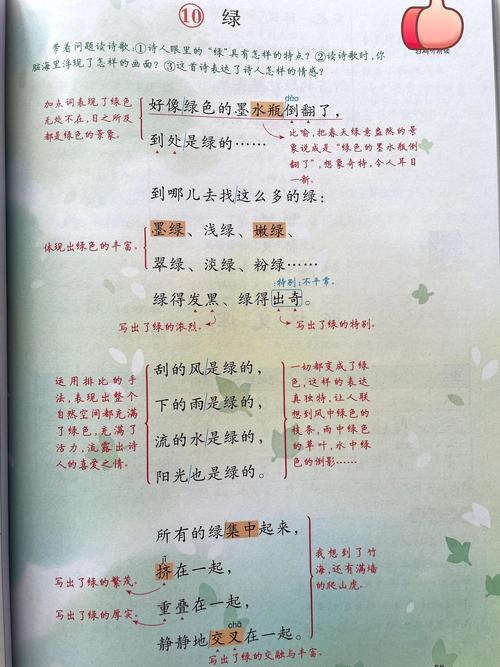 10 绿
带着问题读诗歌:①诗人眼里的“绿”具有怎样的特点?②读诗歌时,你
脑海里浮现了怎样的画面?③这首诗表达了诗人怎样的情感?
加点词表现了绿色
无处不在,目之所及
都是绿色的景象。
dào
好像绿色的墨水瓶倒翻了,
到处是绿的……
比喻,把春天绿意盎然的景
象说成是“绿色的墨水瓶倒
翻了”,想象奇特,令人耳目
一新。
到哪儿去找这么多的绿:
墨绿、浅绿、嫩绿、
翠绿、淡绿、粉绿……
体现出绿色的丰富。
特别;不平常。
绿得发黑、绿得出奇。
写出了绿的浓烈。
写出了绿的特别。
运用排比的手
法,表现出整个
自然空间都充满
了绿色,充满了
活力,流露出诗
人的喜爱之情。
刮的风是绿的,
下的雨是绿的,
流的水是绿的,
阳光也是绿的。
一切都变成了绿
色,这样的表达
真独特,让人联
想到风中绿色的
枝条,雨中绿色
的草叶,水中绿
色的倒影……
所有的绿集中起来,
jǐ
挤在一起,
写出了绿的繁茂。
重叠在一起,
写出了绿的厚实。
chā
静静地交叉在一起。
写出了绿的交融与丰富。
我想到了竹
海,还有满墙
的爬山虎。